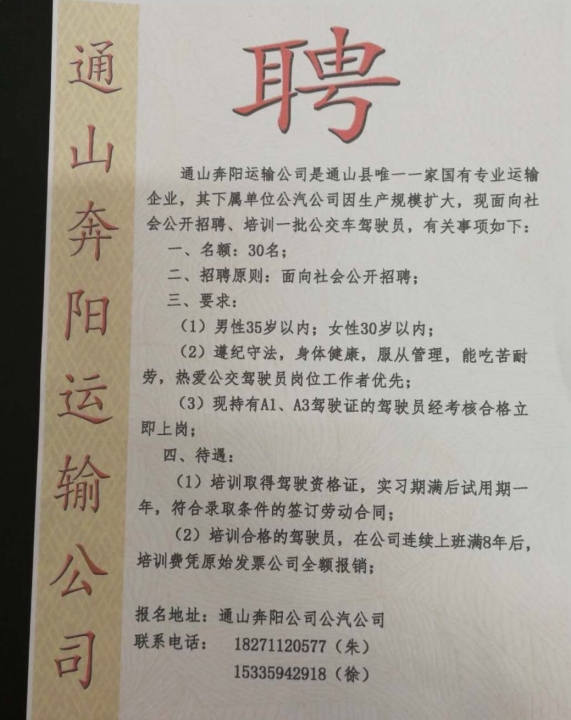 通山奔阳运输公司
聘
通山奔阳运输公司是通山县唯一一家国有专业运输
企业，其下属单位公汽公司因生产规模扩大，现面向社
会公开招聘、培训一批公交车驾驶员，有关事项如下：
一、名额：30名；
二、招聘原则：面向社会公开招聘；
三、要求：
（1）男性35岁以内；女性30岁以内；
（2）遵纪守法，身体健康，服从管理，能吃苦耐
劳，热爱公交驾驶员岗位工作者优先；
（3）现持有A1、A3驾驶证的驾驶员经考核合格立
即上岗；
四、待遇：
（1）培训取得驾驶资格证，实习期满后试用期一
年，符合录取条件的签订劳动合同；
（2）培训合格的驾驶员，在公司连续上班满8年后，
培训费凭原始发票公司全额报销；
报名地址：通山奔阳公司公汽公司
联系电话： 18271120577（朱）
15335942918（徐）